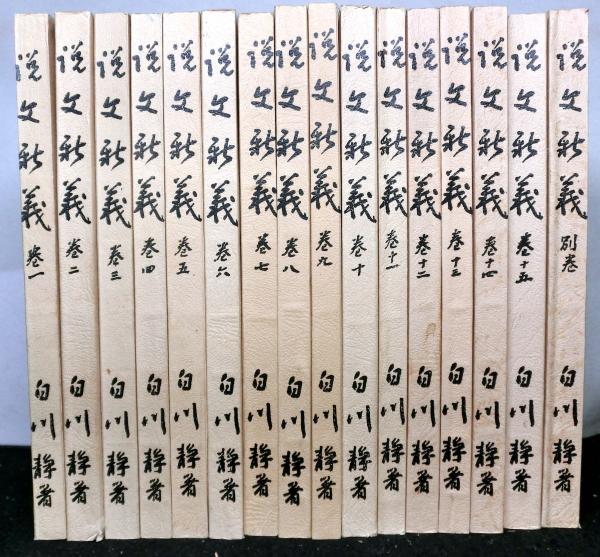 説文新義 巻一 白川静著
説文新義 巻二 白川静著
説文新義 巻三 白川静著
説文新義 巻四 白川静著
説文新義 巻五 白川静著
説文新義 巻六 白川静著
説文新義 巻七 白川静著
説文新義 巻八 白川静著
説文新義 巻九 白川静著
説文新義 巻十 白川静著
説文新義 巻十一 白川静著
説文新義 巻十二 白川静著
説文新義 巻十三 白川静著
説文新義 巻十四 白川静著
説文新義 巻十五 白川静著
説文新義 別巻 白川静著